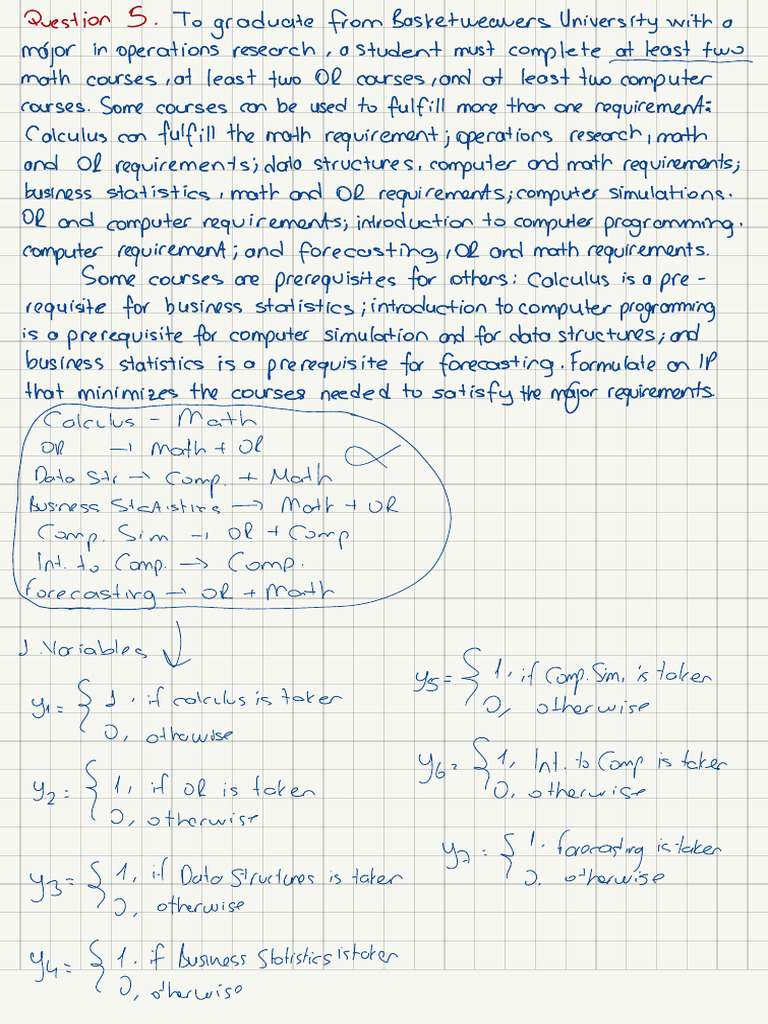 Question 5. To graduate from Basketweavers University with a
major in operations research, a student must complete at least two
math courses, at least two OR courses, and at least two computer
courses. Some courses can be used to fulfill more than one requirement:
Calculus can fulfill the math requirement; operations research, math
and OR requirements; data structures, computer and math requirements;
business statistics, math and OR requirements; computer simulations.
OR and computer requirements; introduction to computer programming.
computer requirement; and forecasting, OR and math requirements.
Some courses are prerequisites for others: Calculus is a pre-
requisite for business statistics; introduction to computer programming
is a prerequisite for computer simulation and for data structures; and
business statistics is a prerequisite for forecasting. Formulate an IP
that minimizes the courses needed to satisfy the major requirements.
Calculus - Math
OR → Math + OR
Data Str → Comp. + Math
Business Statistics → Math + OR
Comp. Sim → OR + Comp
Int. to Comp. → Comp.
Forecasting → OR + Math
1. Variables
y1 = { 1, if calculus is taken
0, otherwise
y2 = { 1, if OR is taken
0, otherwise
y3 = { 1, if Data Structures is taken
0, otherwise
y4 = { 1. if Business Statistics is taken
0, otherwise
y5 = { 1, if Comp. Sim. is taken
0, otherwise
y6 = { 1, Int. to Comp is taken
0, otherwise
y7 = { 1. Forecasting is taken
0. otherwise